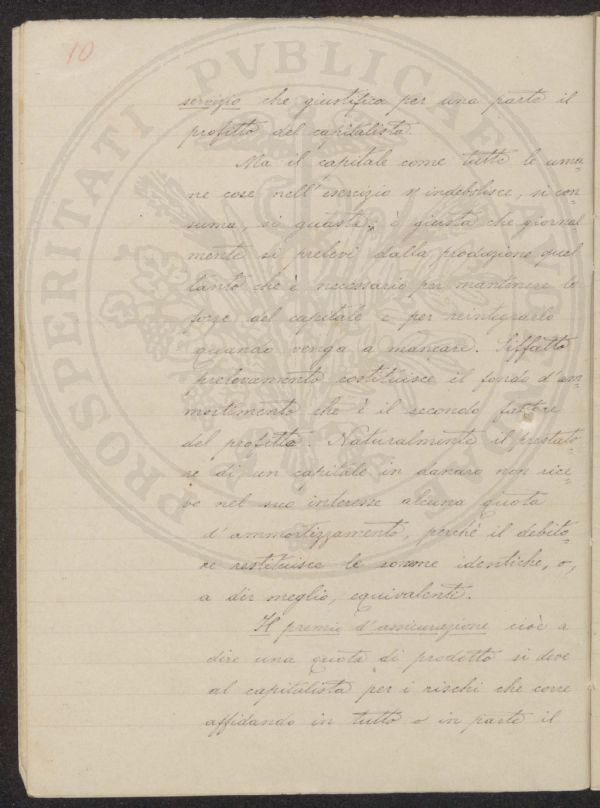 10
servizio che giustifica per una parte il
profitto del capitalista.
Ma il capitale come tutte le uma-
ne cose nell'esercizio s'indebolisce, si con-
suma, si guasta, è giusto che giornal
mente si prelevi dalla produzione quel
tanto che è necessario per mantenere le
forze del capitale e per reintegrarlo
quando venga a mancare. Siffatto
prelevamento costituisce il fondo d'am-
mortimento che è il secondo fattore
del profitto. Naturalmente il prestato-
re di un capitale in danaro non rice-
ve nel suo interesse alcuna quota
d'ammortizzamento, perchè il debito-
re restituisce le somme identiche, o,
a dir meglio, equivalenti.
Il premio d'assicurazione cioè a
dire una quota di prodotto si deve
al capitalista per i rischi che corre
affidando in tutto o in parte il
PROSPERITATI PVBLICAE